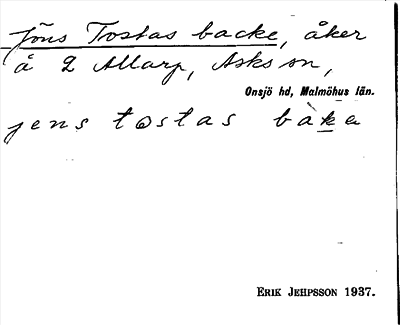 Jöns Tostas backe, åker
å 2 Allarp, Asks sn,
Onsjö hd, Malmöhus län.
jens tostas bàka
Erik Jehpsson 1937.